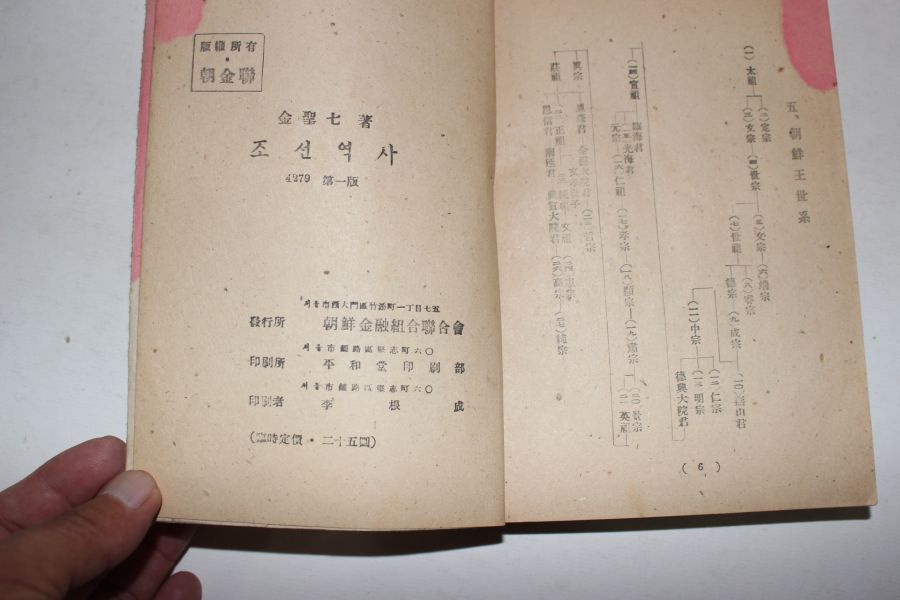 版權所有
·
朝金聯
金聖七 著
조선역사
4279 第一版
서울市西大門區竹添町一丁目七五
發行所 朝鮮金融組合聯合會
서울市鍾路區堅志町六〇
印刷所 平和堂印刷部
서울市鍾路區堅志町六〇
印刷者 李根成
(臨時定價·二十五圓)
五、朝鮮王世系
(一)太祖
(二)定宗
(三)太宗
(四)世宗
(五)文宗
(六)端宗
(七)世祖
德宗
(八)睿宗
(九)成宗
(一〇)燕山君
(一一)中宗
(一二)仁宗
(一三)明宗
德興大院君
(一四)宣祖
臨海君
(一五)光海君
元宗
(一六)仁祖
(一七)孝宗
(一八)顯宗
(一九)肅宗
(二〇)景宗
(二一)英祖
眞宗
莊祖
恩信君
南延君
(二二)正祖
(二六)高宗
(二七)純宗
(6)